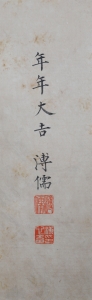 年年大吉 溥儒